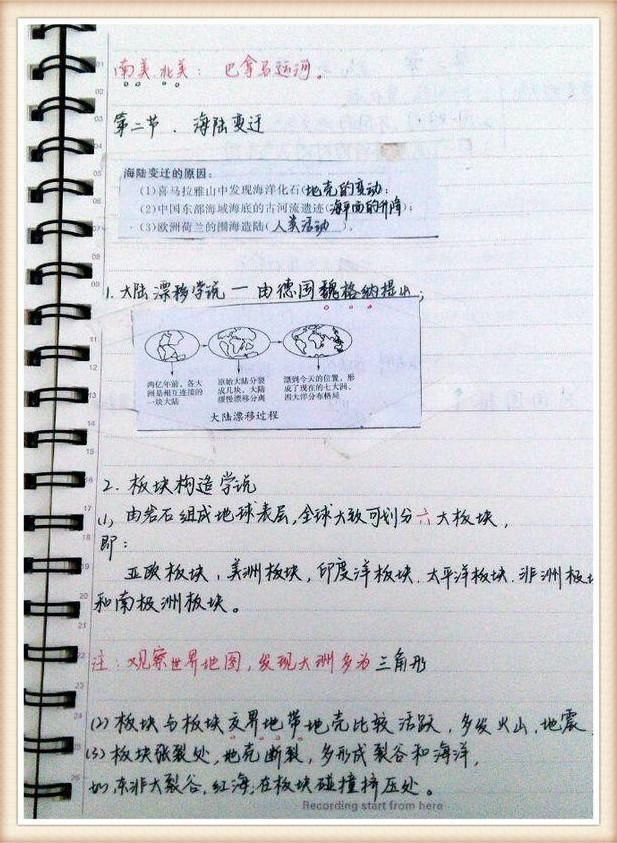 南美北美：巴拿马运河。
第二节．海陆变迁
海陆变迁的原因：
(1)喜马拉雅山中发现海洋化石(地壳的变动；
(2)中国东部海域海底的古河流遗迹(海平面的升降)；
(3)欧洲荷兰的围海造陆(人类活动)。
1.大陆漂移学说一由德国魏格纳提出；
两亿年前，各大
洲是相互连接的
一块大陆
原始大陆分裂
成几块，大陆
缓慢漂移分离
漂到今天的位置，形
成了现在的七大洲、
四大洋分布格局
大陆漂移过程
2.板块构造学说
(1)由岩石组成地球表层,全球大致可划分六大板块，
即：
亚欧板块，美洲板块，印度洋板块.太平洋板块.非洲板块
和南极洲板块。
注：观察世界地图，发现大洲多为三角形
(2)板块与板块交界地带地壳比较活跃，多发火山,地震
(3)板块张裂处,地壳断裂，多形成裂谷和海洋，
如,东非大裂谷,红海;在板块碰撞挤压处。
Recording start from here